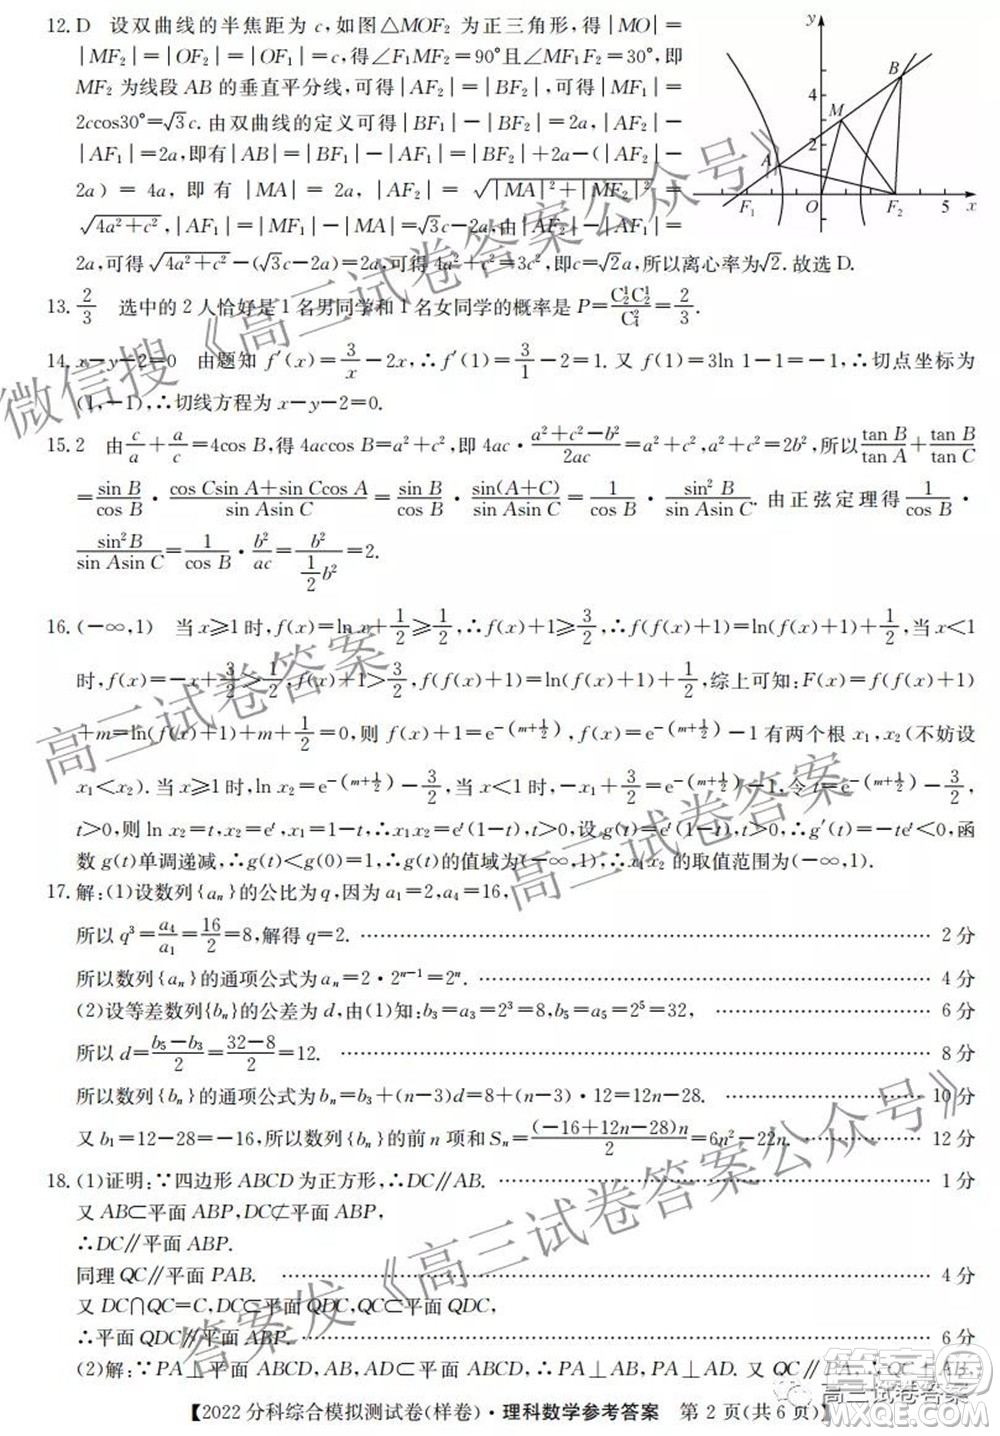 12. D 设双曲线的半焦距为 c,如图△MOF₂ 为正三角形,得|MO|=
|MF₂|=|OF₂|=|OF₁|=c,得∠F₁MF₂=90°且∠MF₁F₂=30°,即
MF₂ 为线段 AB 的垂直平分线,可得|MF₁|=
2ccos30°=√3c. 由双曲线的定义可得|BF₁|-|BF₂|=2a,|AF₂|-
|AF₁|=2a,即有|AB|=|BF₁|-|AF₁|=|BF₂|+2a-(|AF₂|-
2a)=4a,即有|MA|=2a,|AF₂|=√(|MA|²+|MF₂|²)=
√(4a²+c²),|AF₁|=|MF₁|-|MA|=√3c-2a,由|AF₂|-|AF₁|=
2a,可得√(4a²+c²)-(√3c-2a)=2a,可得4a²+c²=3c²,即c=√2a,所以离心率为√2.故选D.
y
4
2
B
M
A
F₁
O
F₂
5
x
13. 2/3 选中的 2 人恰好是 1 名男同学和 1 名女同学的概率是 P=C₂¹C₂¹/C₄²=2/3.
14. x-y-2=0 由题知 f′(x)=3/x-2x,∴f′(1)=3/1-2=1. 又 f(1)=3ln 1-1=-1,∴切点坐标为
(1,-1),∴切线方程为 x-y-2=0.
15. 2 由c/a+a/c=4cos B,得 4accos B=a²+c²,即 4ac·(a²+c²-b²)/2ac=a²+c²,a²+c²=2b²,所以tan B/tan A+tan B/tan C
=sin B/cos B·(cos Csin A+sin Ccos A)/(sin Asin C)=sin B/cos B·sin(A+C)/(sin Asin C)=1/cos B·sin²B/(sin Asin C). 由正弦定理得1/cos B·
sin²B/(sin Asin C)=1/cos B·b²/ac=b²/(½b²)=2.
16. (-∞,1) 当 x≥1 时,f(x)=ln x+1/2≥1/2,∴f(x)+1≥3/2,∴f(f(x)+1)=ln(f(x)+1)+1/2,当 x<1
时,f(x)=-x+3/2>1/2,f(x)+1>3/2,f(f(x)+1)=ln(f(x)+1)+1/2,综上可知:F(x)=f(f(x)+1)
+m=ln(f(x)+1)+m+1/2=0,则 f(x)+1=e^-(m+1/2),f(x)=e^-(m+1/2)-1 有两个根 x₁,x₂(不妨设
x₁<x₂).当 x≥1 时,ln x₂=e^-(m+1/2)-3/2,当 x<1 时,-x₁+3/2=e^-(m+1/2)-1,令 t=e^-(m+1/2)-3/2,
t>0,则 ln x₂=t,x₂=eᵗ,x₁=1-t,∴x₁x₂=eᵗ(1-t),t>0,设 g(t)=eᵗ(1-t),t>0,∴g′(t)=-teᵗ<0,函
数 g(t)单调递减,∴g(t)<g(0)=1,∴g(t)的值域为(-∞,1),∴x₁x₂ 的取值范围为(-∞,1).
17. 解:(1)设数列{aₙ}的公比为 q,因为 a₁=2,a₄=16,
所以 q³=a₄/a₁=16/2=8,解得 q=2. …… 2 分
所以数列{aₙ}的通项公式为aₙ=2·2ⁿ⁻¹=2ⁿ. …… 4 分
(2)设等差数列{bₙ}的公差为 d,由(1)知:b₃=a₃=2³=8,b₅=a₅=2⁵=32, …… 6 分
所以 d=(b₅-b₃)/2=(32-8)/2=12. …… 8 分
所以数列{bₙ}的通项公式为 bₙ=b₃+(n-3)d=8+(n-3)·12=12n-28. …… 10 分
又 b₁=12-28=-16,所以数列{bₙ}的前 n 项和 Sₙ=(-16+12n-28)n/2=6n²-22n. …… 12 分
18. (1)证明:∵四边形 ABCD 为正方形,∴DC∥AB. …… 1 分
又 AB⊂平面 ABP,DC⊄平面 ABP,
∴DC∥平面 ABP.
同理 QC∥平面 PAB. …… 4 分
又 DC∩QC=C,DC⊂平面 QDC,QC⊂平面 QDC,
∴平面 QDC∥平面 ABP. …… 6 分
(2)解:∵PA⊥平面 ABCD,AB,AD⊂平面 ABCD,∴PA⊥AB,PA⊥AD. 又 QC∥PA,∴QC⊥AB,
【2022 分科综合模拟测试卷(样卷)·理科数学参考答案 第 2 页(共 6 页)】
微信搜《高三试卷答案公众号》
高三试卷答案
高三试卷答案
答案发《高三试卷答案公众号》
高三试卷答案
答案圈
MXQE.COM